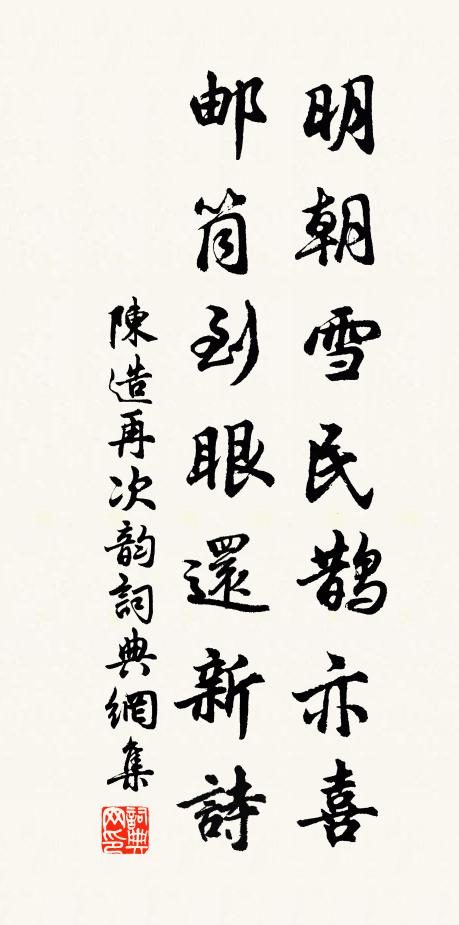 明朝雪民鵲亦喜
邮筒到眼還新詩
陳造再次韵詞典網集
詞典网印